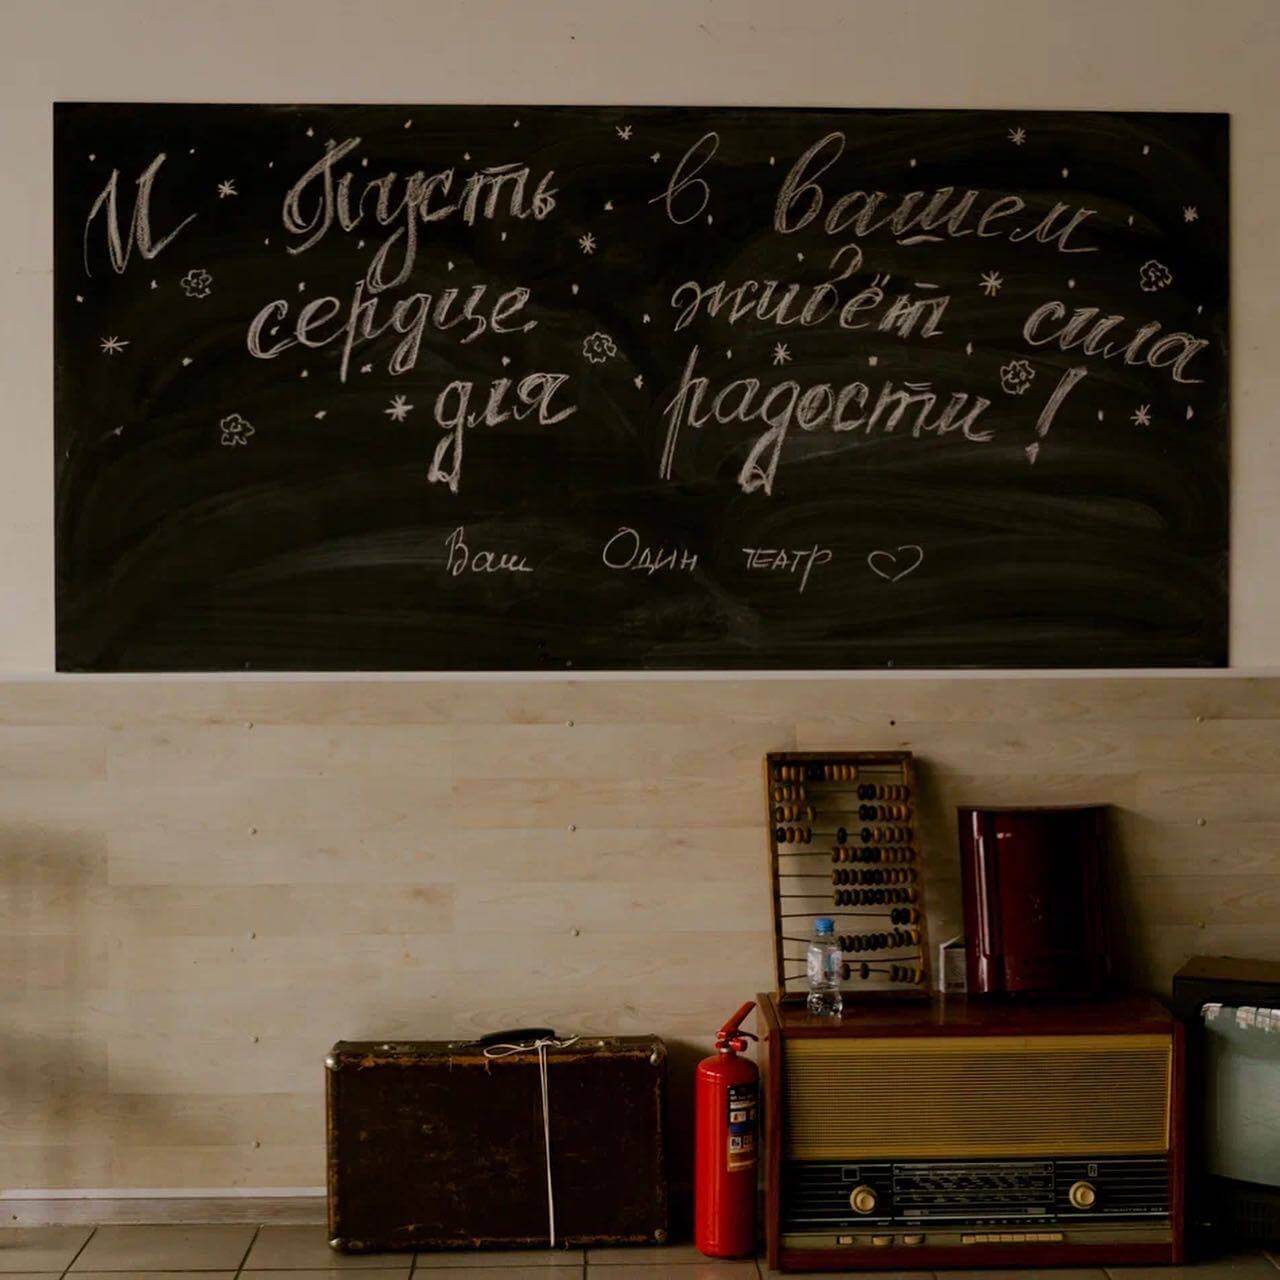 И Пусть в вашем
сердце живёт сила
для радости!
Ваш Один театр